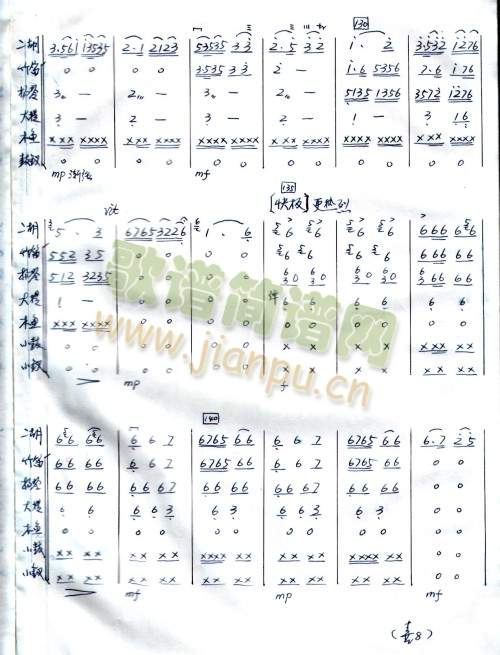 130
二胡 3.561 13535 | 2.1 2123 | 53535 33 | 2.5 32 | 1. 2 | 3.532 1276
竹笛 0 0 | 0 0 | 3535 33 | 2 — | 1.6 5356 | 7.6 176
扬琴 3 — | 2 — | 3 — | 2 — | 5135 1356 | 3572 1276
大提 3 — | 2 — | 3 — | 2 — | 1 — | 3 16
木鱼 xx xxxx | xx xxxx | xx xxxx | xx xxxx | xx xxxx | xx xxxx
0 0 | 0 0 | 0 0 | 0 0 | 0 0 | 0 0
mp mf
rit 135 [快板]
二胡 5 . 3 | 6765 3226 | 1 . 6 | 6 6 | 6 6 | 666 66
竹笛 552 35 | 0 0 | 0 0 | 6 6 | 6 6 | 666 66
扬琴 512 3235 | 0 0 | 0 0 | 60 60 | 60 60 | 666 66
大提 1 — | 0 0 | 0 0 | 6 6 | 6 6 | 6 6
木鱼 xxx xxxx | 0 0 | 0 0 | 0 0 | 0 0 | 0 0
小鼓 0 0 | 0 0 | 0 0 | x x | x x | xxx xx
小钗 0 0 | 0 0 | 0 0 | x x | x x | xx xx
mp f
歌谱简谱网
www.jianpu.cn
140
二胡 66 66 | 6 6 7 | 6765 66 | 6 6 7 | 6765 66 | 6.7 25
竹笛 66 66 | 6 6 7 | 6765 66 | 6 6 7 | 6765 66 | 0 0
扬琴 66 66 | 66 67 | 66 66 | 66 67 | 66 66 | 0 0
大提 6 6 | 6 63 | 6 3 | 6 63 | 6 6 | 0 0
木鱼 0 0 | 0 0 | 0 0 | 0 0 | 0 0 | 0 0
小鼓 xx xx | xx xx | xxxx xx | xx xx | xxxx xx | 0 0
小钗 xx xx | xx xx | xx xx | xx xx | xx xx | 0 0
mf mp mf